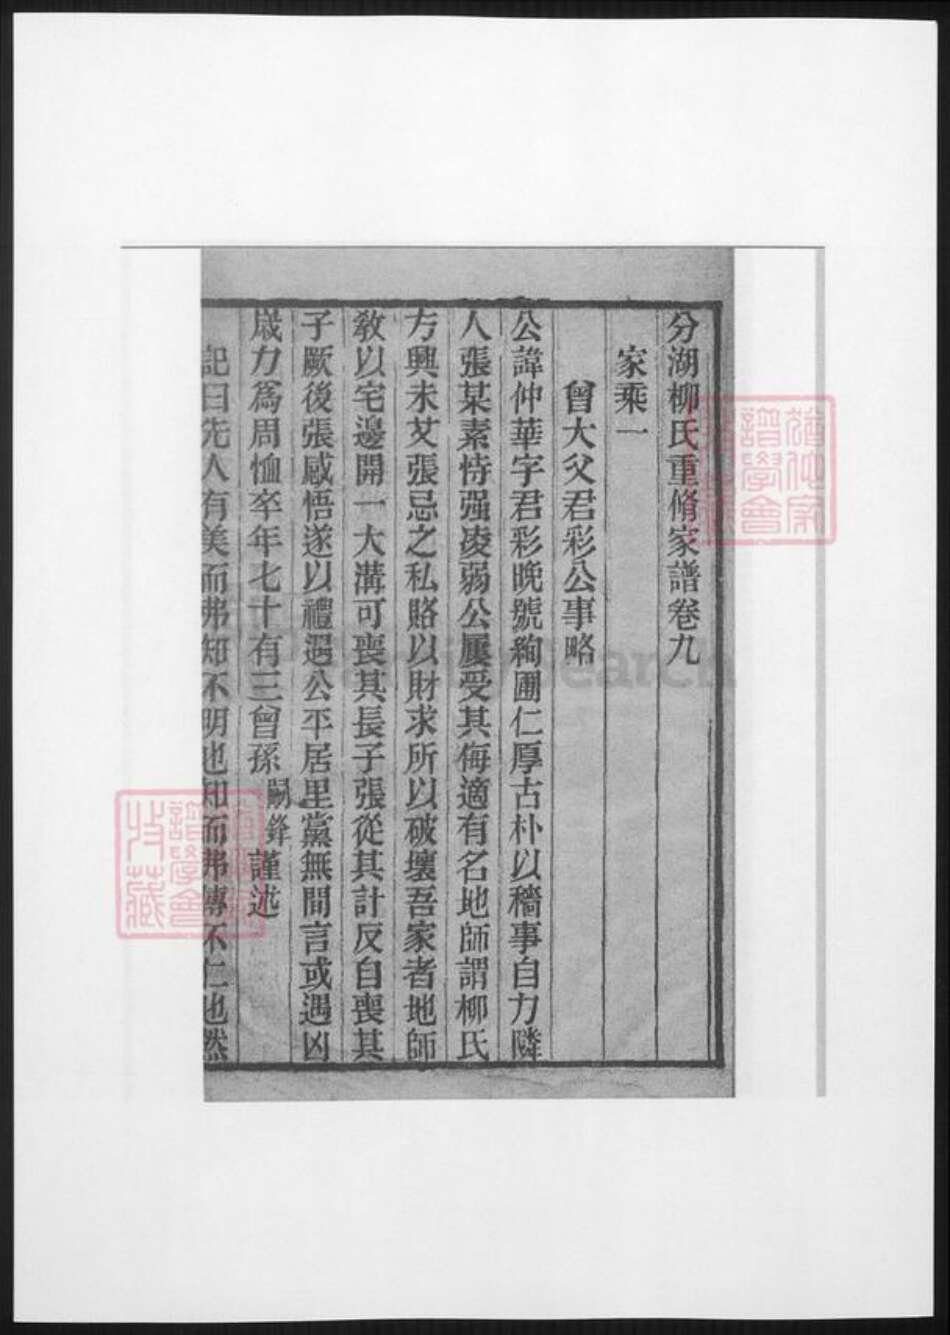 分湖柳氏重脩家譜卷九
家乘一
曾大父君彩公事略
公諱仲華字君彩晚號絢圃仁厚古朴以穡事自力隣
人張某素恃强凌弱公屢受其侮適有名地師謂柳氏
方興未艾張忌之私賂以財求所以破壞吾家者地師
教以宅邊開一大溝可喪其長子張從其計反自喪其
子厥後張感悟遂以禮遇公平居里黨無間言或遇凶
歲力爲周恤卒年七十有三曾孫嗣鋒謹述
記曰先人有美而弗知不明也知而弗傳不仁也然